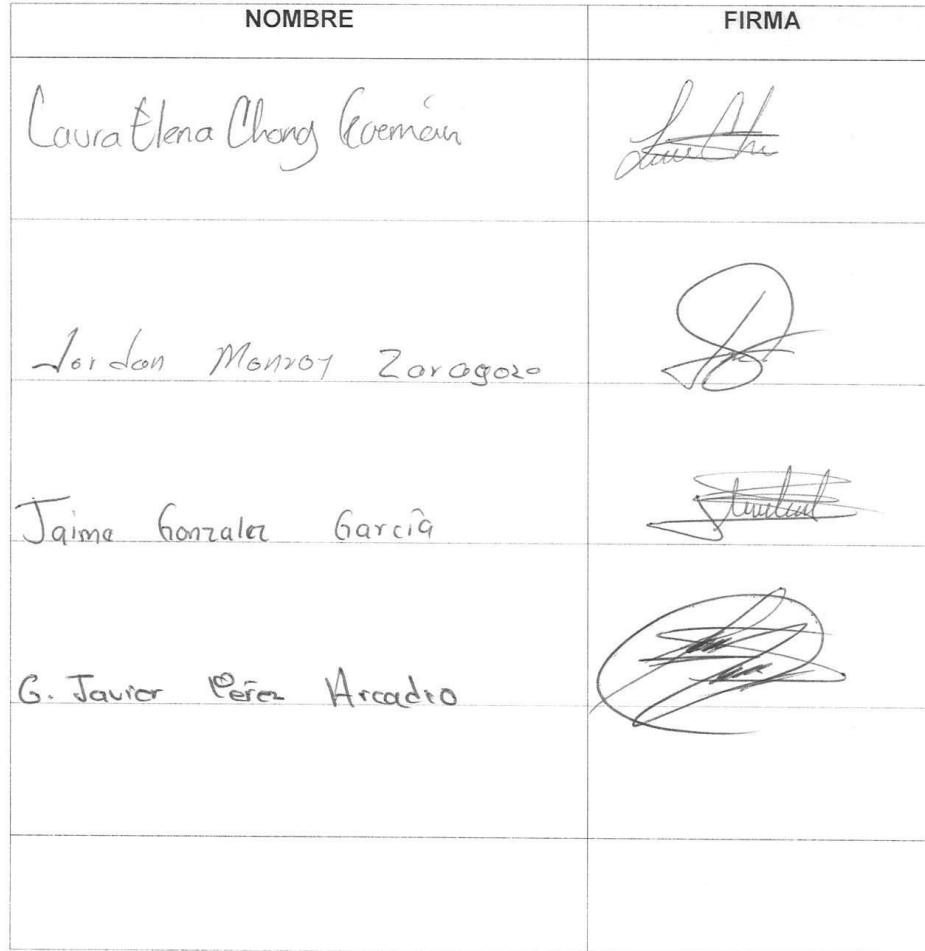 NOMBRE FIRMA
Laura Elena Chong Guemán
Jordan Monroy Zaragoza
Jaime Gonzalez García
G. Javier Pérez Arcadio